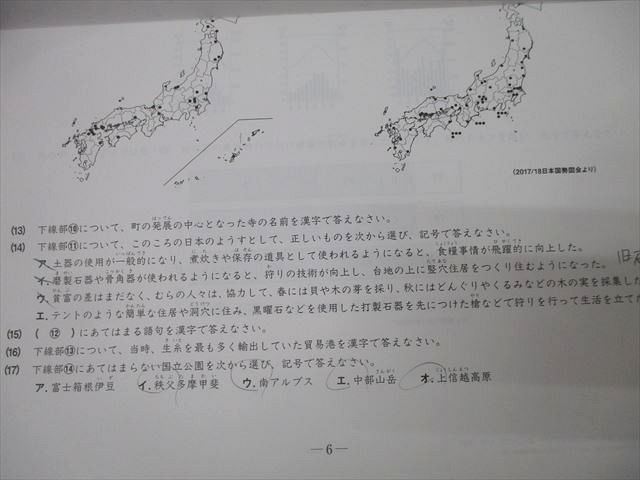 (2017/18日本国勢図会より)
(13) 下線部⑩について、町の発展の中心となった寺の名前を漢字で答えなさい。
(14) 下線部⑪について、このころの日本のようすとして、正しいものを次から選び、記号で答えなさい。
ア.土器の使用が一般的になり、煮炊きや保存の道具として使われるようになると、食糧事情が飛躍的に向上した。
イ.磨製石器や骨角器が使われるようになると、狩りの技術が向上し、台地の上に竪穴住居をつくり住むようになった。
ウ.貧富の差はまだなく、むらの人々は、協力して、春には貝や木の芽を採り、秋にはどんぐりやくるみなどの木の実を採集した
エ.テントのような簡単な住居や洞穴に住み、黒曜石などを使用した打製石器を先につけた槍などで狩りを行って生活を立て
(15) ( ⑫ )にあてはまる語句を漢字で答えなさい。
(16) 下線部⑬について、当時、生糸を最も多く輸出していた貿易港を漢字で答えなさい。
(17) 下線部⑭にあてはまらない国立公園を次から選び、記号で答えなさい。
ア.富士箱根伊豆 イ.秩父多摩甲斐 ウ.南アルプス エ.中部山岳 オ.上信越高原
—6—